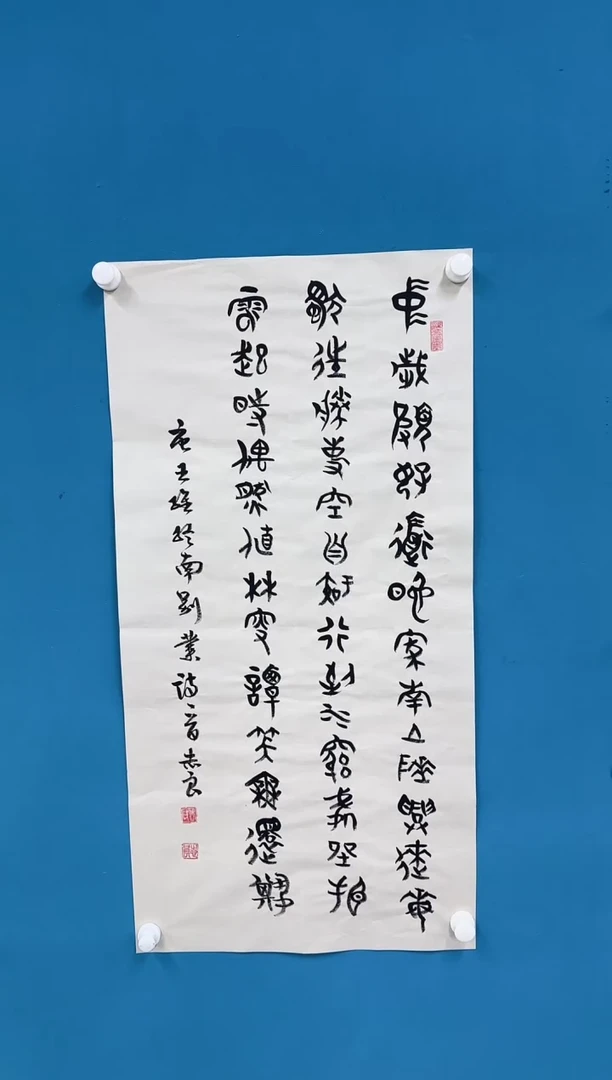 中歲頗好道晚家南山陲興來每
獨往勝事空自知行到水窮處坐看
雲起時偶然值林叟譚笑無還期
唐王維終南別業詩一首良